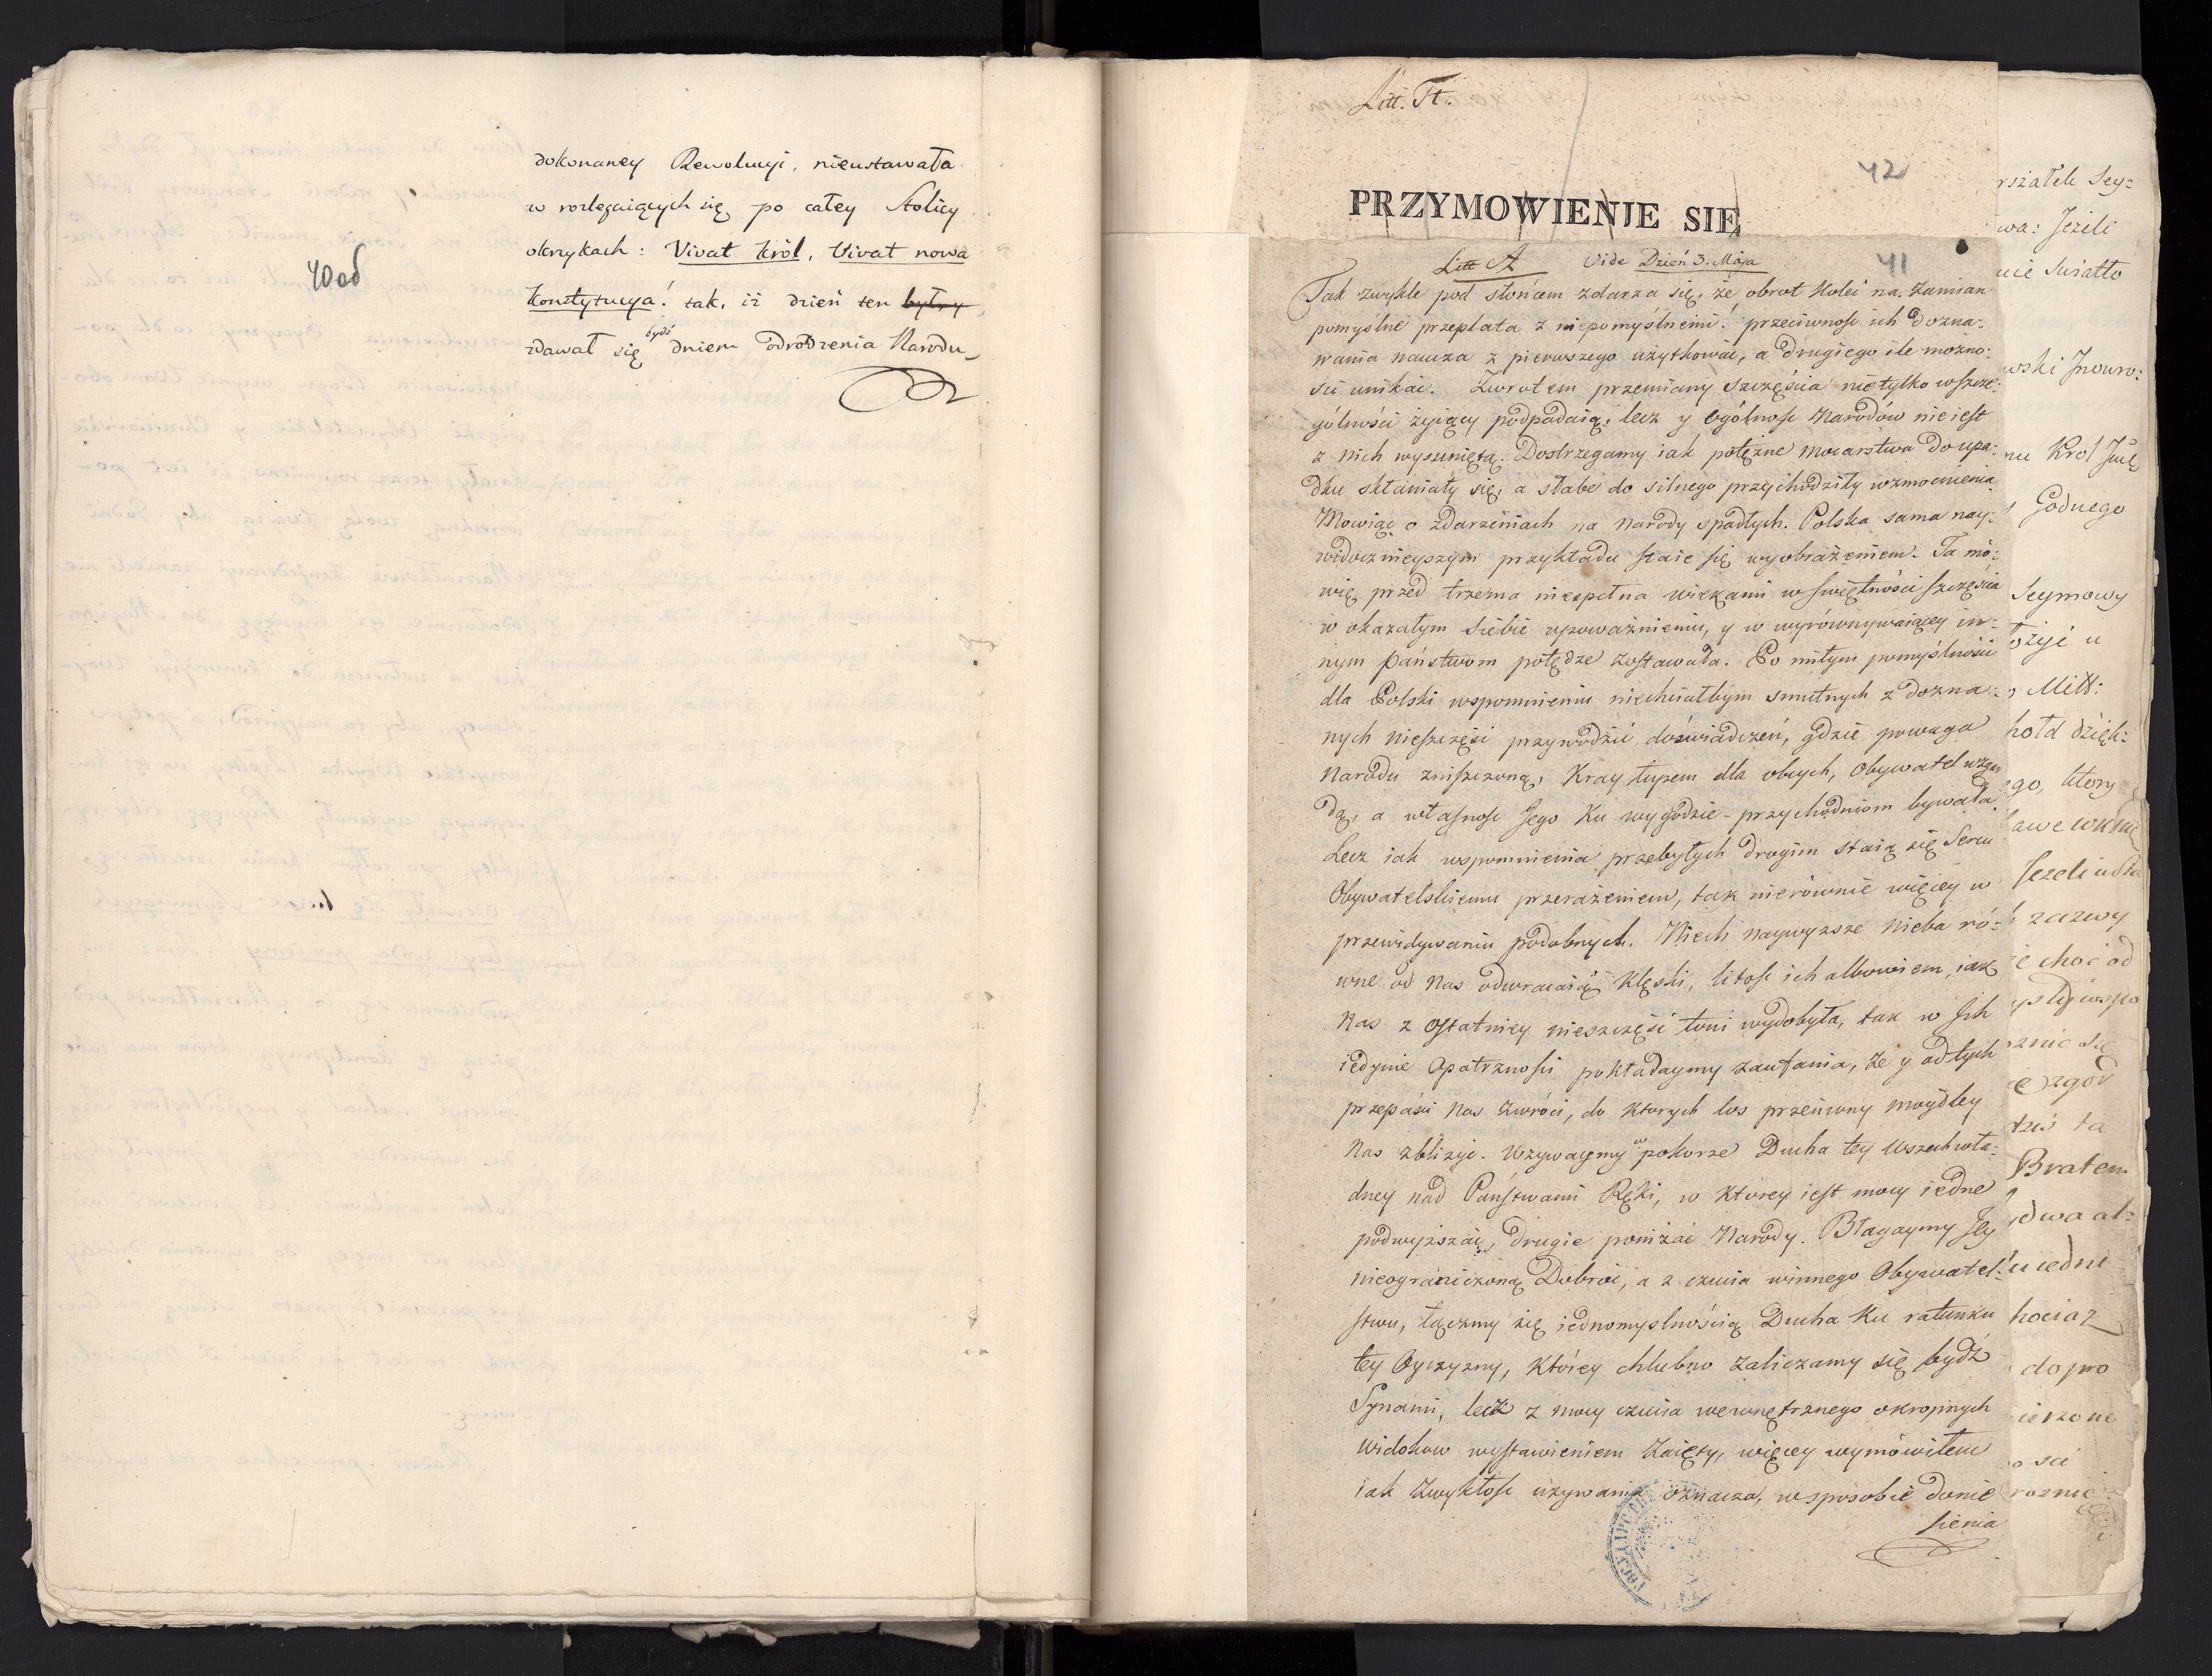 dokonaney Rewolucyi, nieustawała
w rozlegaiących się po całey Stolicy
okrzykach: Vivat Król, Vivat nowa
Konstytucya! tak, iż dzień ten był, y
zdawał się bydź dniem odrodzenia Narodu
40об
Litt. Tt.
42
PRZYMOWIENIE SIĘ
Litt A vide Dzień 3. Maja
41
Tak zwykle pod słońcem zdarza się, że obrot kolei na zamian
pomyślne przeplata z niepomyślnemi: przeciwność ich dozna-
wania naucza z pierwszego użytkować, a drugiego ile możno-
ści unikać. Zwrotem przemiany szczęścia nietylko wszcze-
gólności żyiący podpadaią, lecz y ogólność Narodów nie iest
z nich wysunięta. Dostrzegamy iak potężne mocarstwa do upa-
dku skłaniały się, a słabe do silnego przychodziły wzmocnienia
Mowiąc o zdarzeniach na narody spadłych. Polska sama nay-
widocznieyszym przykładu staie się wyobrażeniem. Ta mó-
wię przed trzema niespełna wiekami w świętności szczęścia
w okazałym siebie upoważnieniu, y w wyrównywaiącey in-
nym państwom potędze zostawała. Po miłym pomyślności
dla Polski wspomnieniu niechciałbym smutnych z dozna-
nych nieszczęść przywodzić doświadczeń, gdzie powaga
Narodu zniszczoną, Kray łupem dla obcych, Obywatel wzgar
dą, a własność Jego ku wygodzie przychodniom bywała.
Lecz iak wspomnienia przebytych drogim staią się Sercu
Obywatelskiemu przerażeniem, tak nierównie więcey w
przewidywaniu podobnych. Niech naywyższe Nieba ró-
wne od Nas odwracaią klęski, litość ich albowiem, iak
Nas z ostatniey nieszczęść toni wydobyła, tak w Ich
iedynie Opatrzności pokładaymy zaufania, że y od tych
przepaści Nas zwróci, do ktorych los przeciwny
Nas zbliży. Wzywaymy w pokorze Ducha tey wszechwła-
dney nad Państwami Ręki, w ktorey iest mocy iedne
podwyższać, drugie poniżać Narody. Błagaymy Jey
nieograniczoną Dobroć, a z czucia winnego Obywatel-
stwu, łączmy się iednomyslnością Ducha ku ratunku
tey Oyczyzny, ktorey chlubno zaliczamy się bydź
Synami, lecz z mocy czucia wewnętrznego okropnych
widokow wystawieniem zaięty, więcey wymówiłem
iak zwykłość używania oznacza, w sposobie donie
sienia
rszałek Sey:
wa: Jeżeli
nie swiatło
wski Jnowro:
mu Krol
Godnego
Seymowy
ożyć u
hołd dzięk:
go, ktory
Jezeli
zazwy
choć od
Bratem
dwa
hociaz
do pro